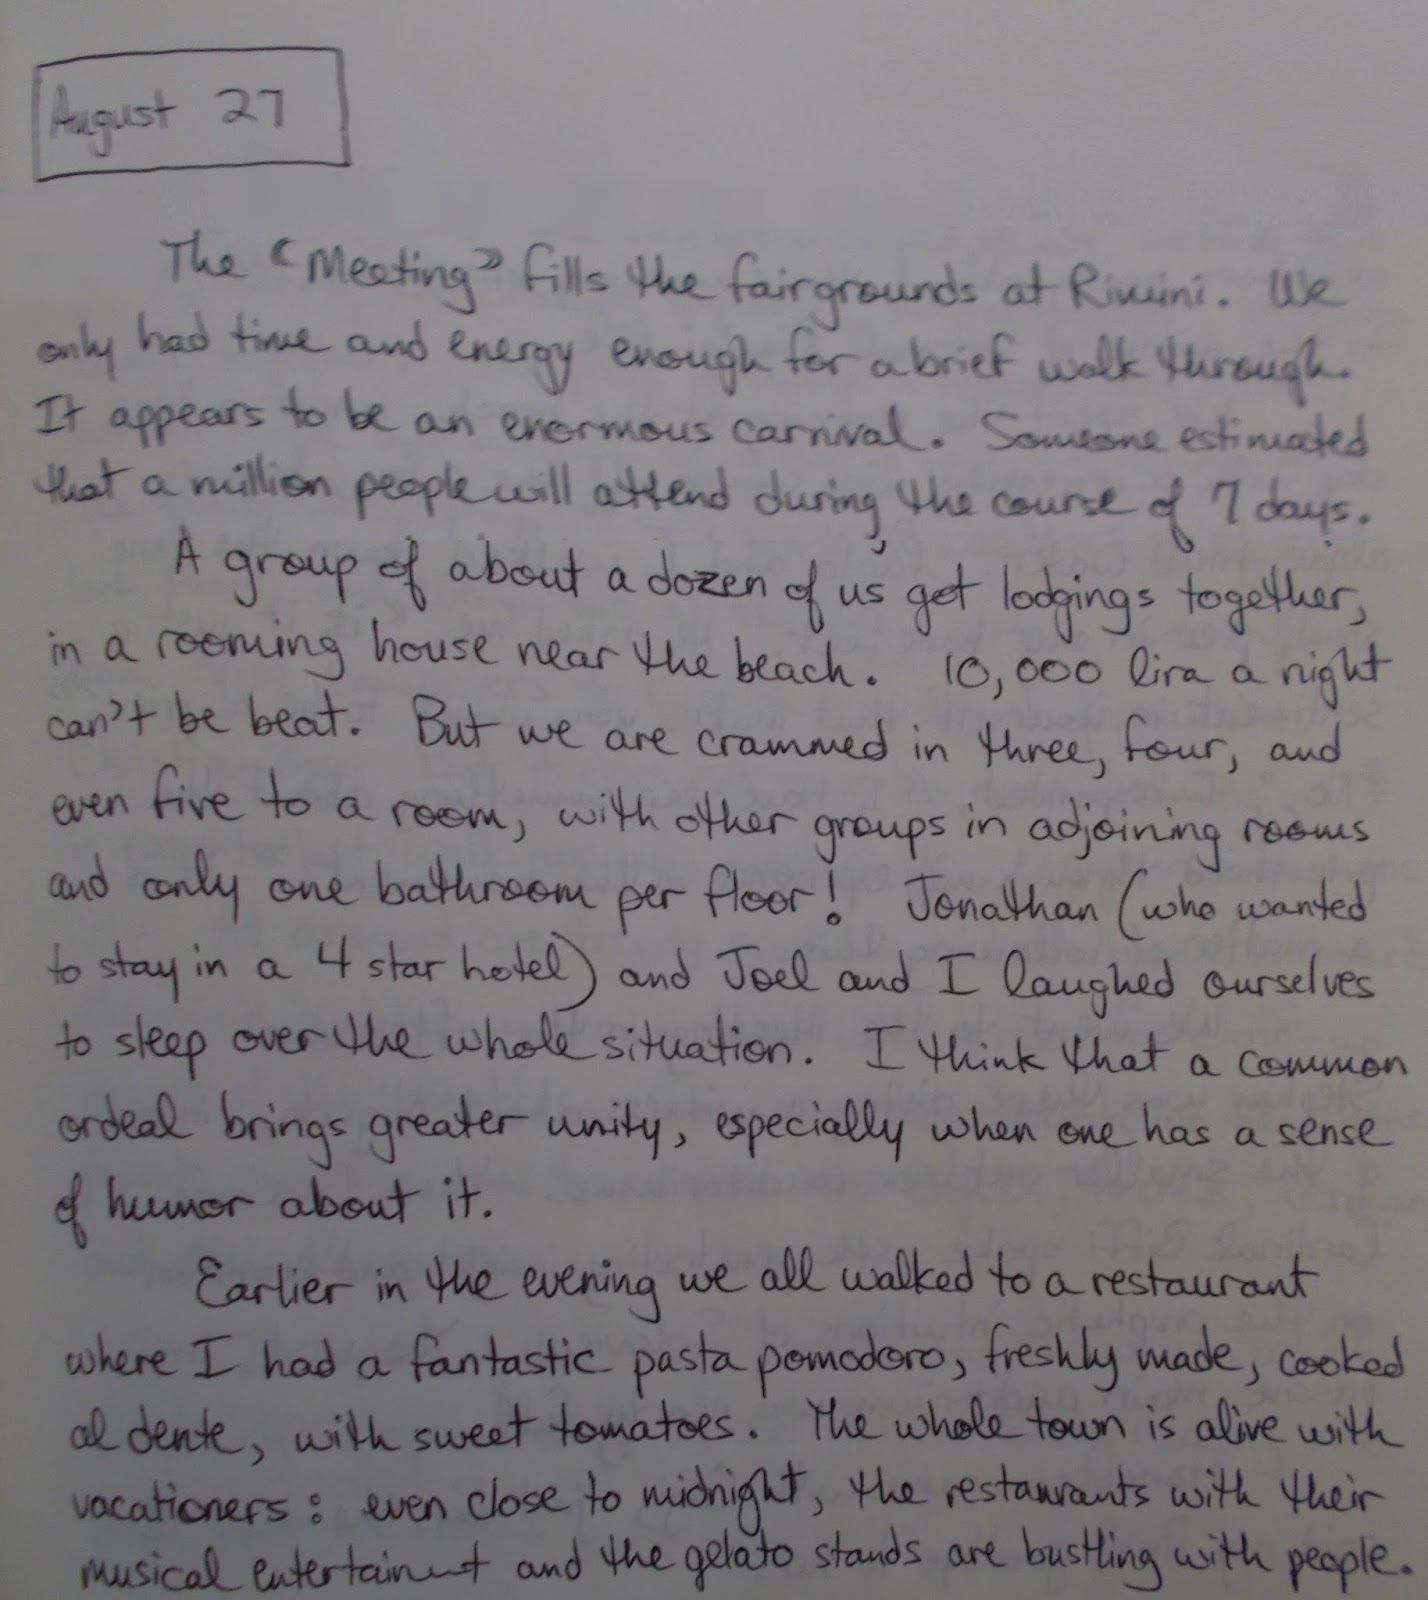 August 27
The "Meeting" fills the fairgrounds at Rimini. We
only had time and energy enough for a brief walk through.
It appears to be an enormous carnival. Someone estimated
that a million people will attend during the course of 7 days.
A group of about a dozen of us get lodgings together,
in a rooming house near the beach. 10,000 lira a night
can't be beat. But we are crammed in three, four, and
even five to a room, with other groups in adjoining rooms
and only one bathroom per floor! Jonathan (who wanted
to stay in a 4 star hotel) and Joel and I laughed ourselves
to sleep over the whole situation. I think that a common
ordeal brings greater unity, especially when one has a sense
of humor about it.
Earlier in the evening we all walked to a restaurant
where I had a fantastic pasta pomodoro, freshly made, cooked
al dente, with sweet tomatoes. The whole town is alive with
vacationers: even close to midnight, the restaurants with their
musical entertainment and the gelato stands are bustling with people.